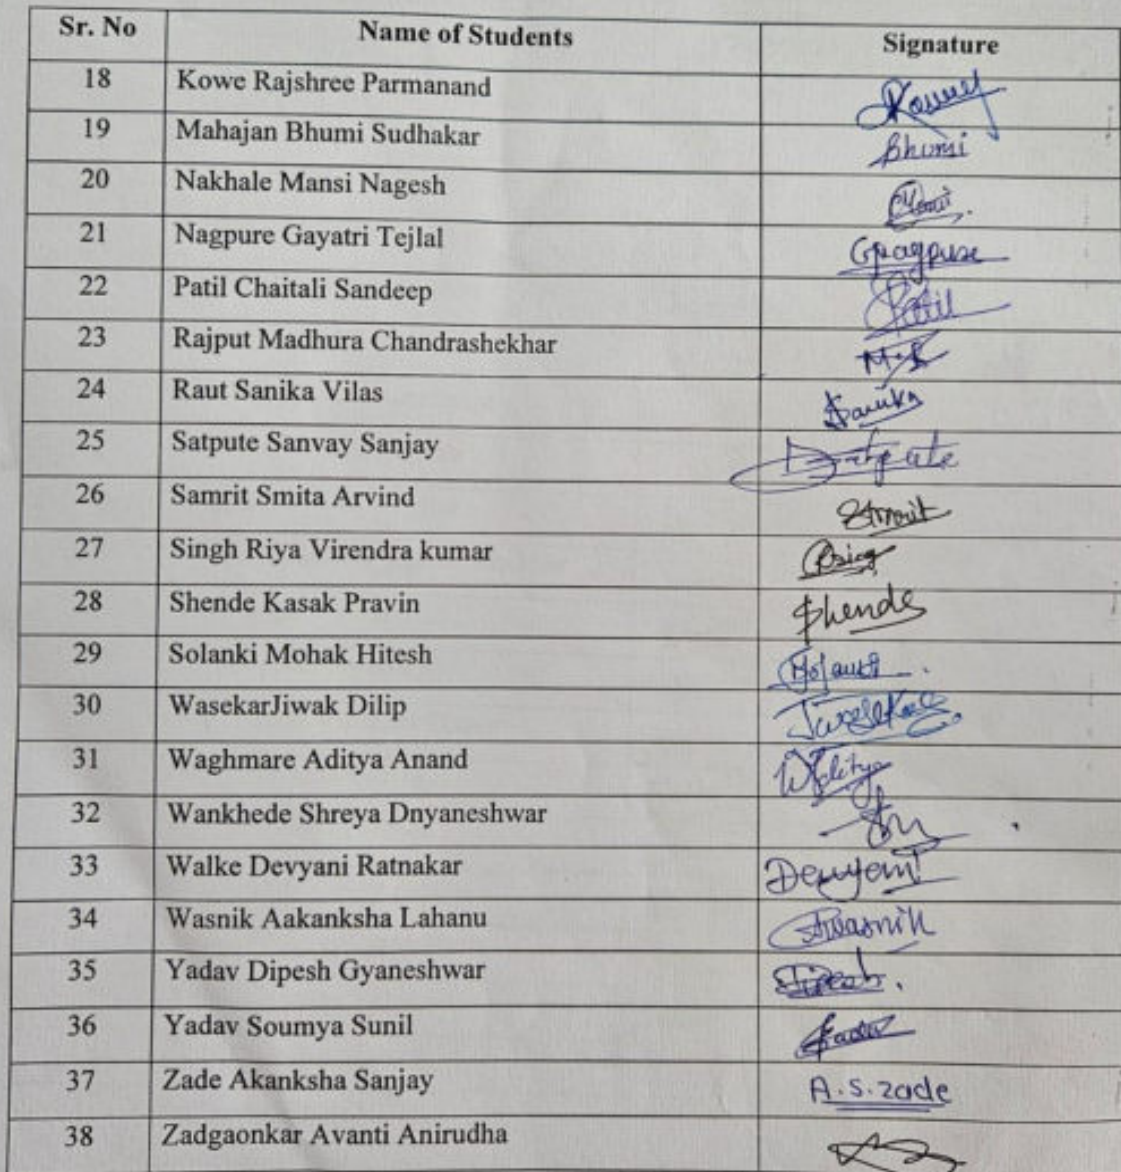 Sr. No Name of Students Signature
18 Kowe Rajshree Parmanand
19 Mahajan Bhumi Sudhakar Bhumi
20 Nakhale Mansi Nagesh
21 Nagpure Gayatri Tejlal
22 Patil Chaitali Sandeep Patil
23 Rajput Madhura Chandrashekhar
24 Raut Sanika Vilas Sanika
25 Satpute Sanvay Sanjay
26 Samrit Smita Arvind
27 Singh Riya Virendra kumar
28 Shende Kasak Pravin Shende
29 Solanki Mohak Hitesh
30 WasekarJiwak Dilip
31 Waghmare Aditya Anand
32 Wankhede Shreya Dnyaneshwar
33 Walke Devyani Ratnakar Devyani
34 Wasnik Aakanksha Lahanu
35 Yadav Dipesh Gyaneshwar Dipesh.
36 Yadav Soumya Sunil
37 Zade Akanksha Sanjay A.S.zade
38 Zadgaonkar Avanti Anirudha